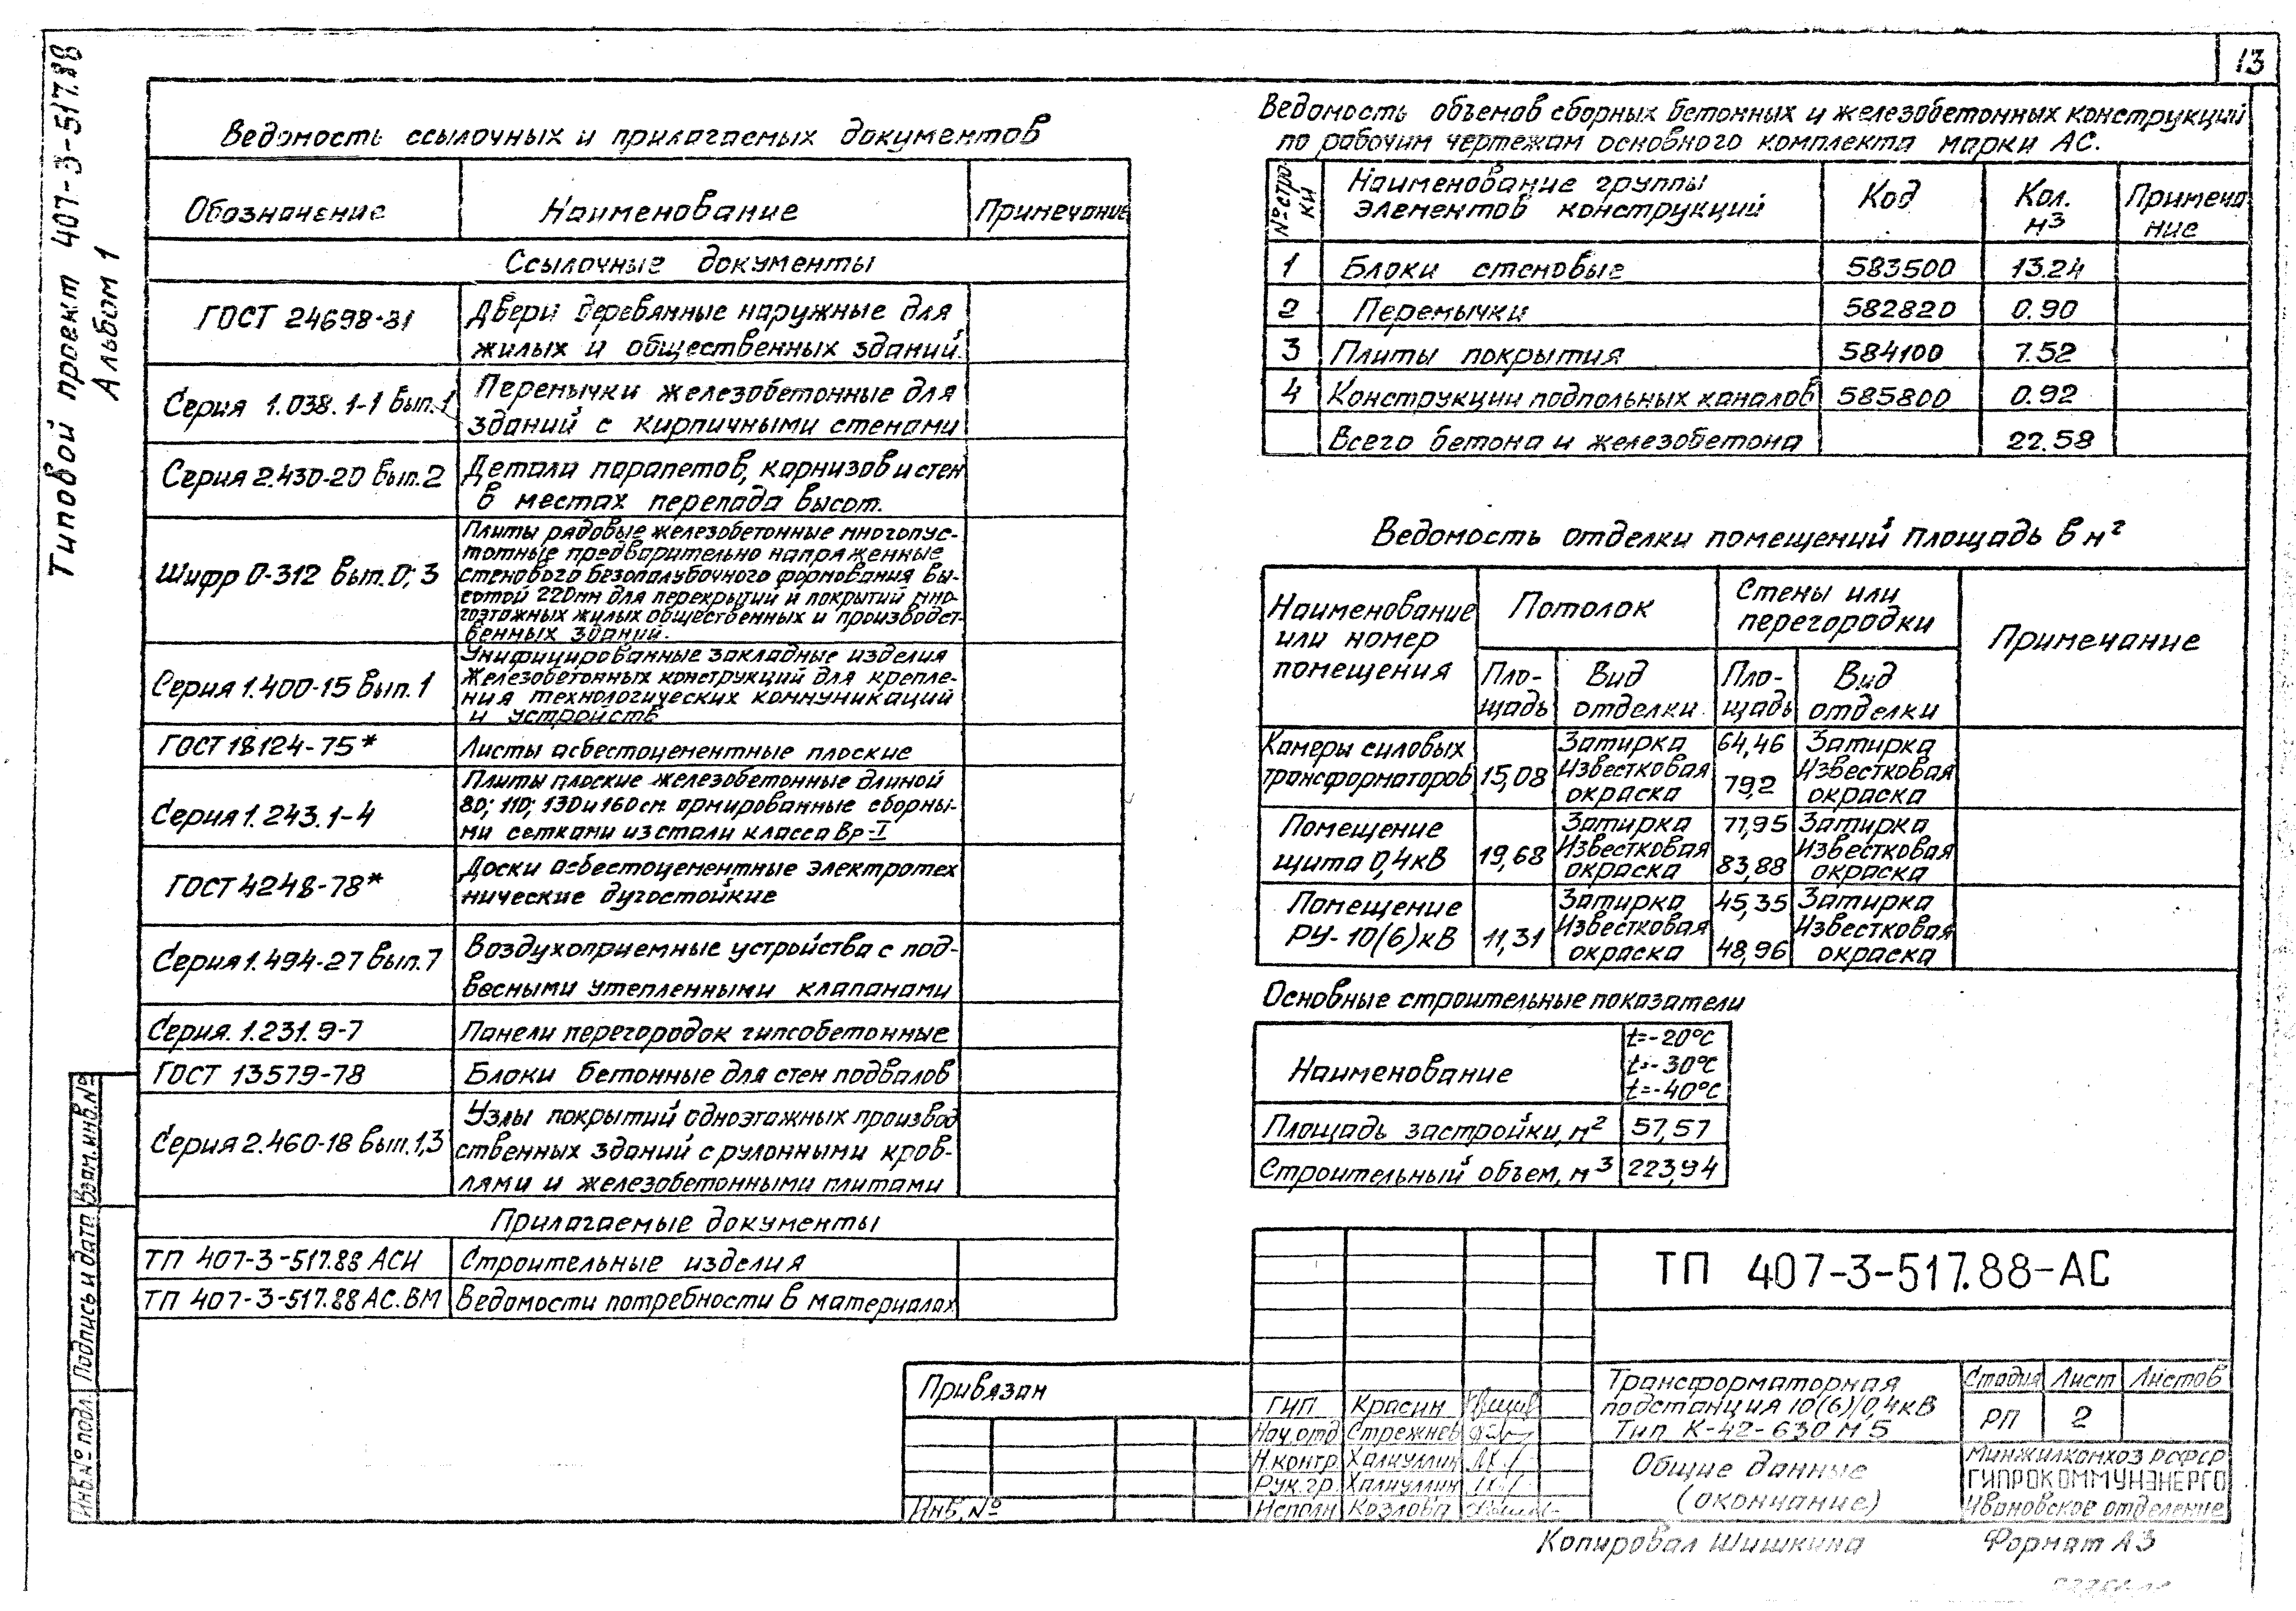 13
Типовой проект 407-3-517.88
Альбом 1
Ведомость ссылочных и прилагаемых документов
Обозначение
Наименование
Примечание
Ссылочные документы
ГОСТ 24698-81
Двери деревянные наружные для
жилых и общественных зданий.
Серия 1.038.1-1 вып.1
Перемычки железобетонные для
зданий с кирпичными стенами
Серия 2.430-20 вып.2
Детали парапетов, карнизов и стен
в местах перепада высот.
Шифр 0-312 вып.0; 3
Плиты рядовые железобетонные многопус-
тотные предварительно напряженные
стенового безопалубочного формования вы-
сотой 220мм для перекрытий и покрытий мно-
гоэтажных жилых общественных и производст-
венных зданий.
Серия 1.400-15 вып.1
Унифицированные закладные изделия
железобетонных конструкций для крепле-
ния технологических коммуникаций
и устройств
ГОСТ 18124-75*
Листы асбестоцементные плоские
Серия 1.243.1-4
Плиты плоские железобетонные длиной
80; 110; 130 и 160 см армированные сборны-
ми сетками из стали класса Вр-I
ГОСТ 4248-78*
Доски асбестоцементные электротех
нические дугостойкие
Серия 1.494-27 вып.7
Воздухоприемные устройства с под-
весными утепленными клапанами
Серия. 1.231.9-7
Панели перегородок гипсобетонные
ГОСТ 13579-78
Блоки бетонные для стен подвалов
Серия 2.460-18 вып.1,3
Узлы покрытий одноэтажных производ
ственных зданий с рулонными кров-
лями и железобетонными плитами
Прилагаемые документы
ТП 407-3-517.88 АСИ
Строительные изделия
ТП 407-3-517.88 АС.ВМ
Ведомости потребности в материалах
Ведомость объемов сборных бетонных и железобетонных конструкций
по рабочим чертежам основного комплекта марки АС.
№ стро
ки
Наименование группы
элементов конструкций
Код
Кол.
м3
Примеча
ние
1 Блоки стеновые 583500 13.24
2 Перемычки 582820 0.90
3 Плиты покрытия 584100 7.52
4 Конструкции подпольных каналов 585800 0.92
Всего бетона и железобетона 22.58
Ведомость отделки помещений площадь в м2
Наименование
или номер
помещения
Потолок
Стены или
перегородки
Примечание
Пло-
щадь
Вид
отделки
Пло-
щадь
Вид
отделки
Камеры силовых
трансформаторов
15,08
Затирка
Известковая
окраска
64,46
79,2
Затирка
Известковая
окраска
Помещение
щита 0,4кВ
19,68
Затирка
Известковая
окраска
77,95
83,88
Затирка
Известковая
окраска
Помещение
РУ-10(6)кВ
11,31
Затирка
Известковая
окраска
45,35
48,96
Затирка
Известковая
окраска
Основные строительные показатели
Наименование
t=-20°С
t=-30°С
t=-40°С
Площадь застройки, м2 57,57
Строительный объем, м3 223,94
ТП 407-3-517.88-АС
Привязан
Инв.№
ГИП Красин
Нач.отд Стрежнев
Н.контр. Халиуллин
Рук.гр. Халиуллин
Исполн Козлова
Трансформаторная
подстанция 10(6)/0,4кВ
Тип К-42-630 М5
Стадия Лист Листов
РП 2
Общие данные
(окончание)
Минжилкомхоз РСФСР
ГИПРОКОММУНЭНЕРГО
Ивановское отделение
Копировал Шишкина
Формат А3
Взам.инв.№
Подпись и дата
Инв.№ подл.